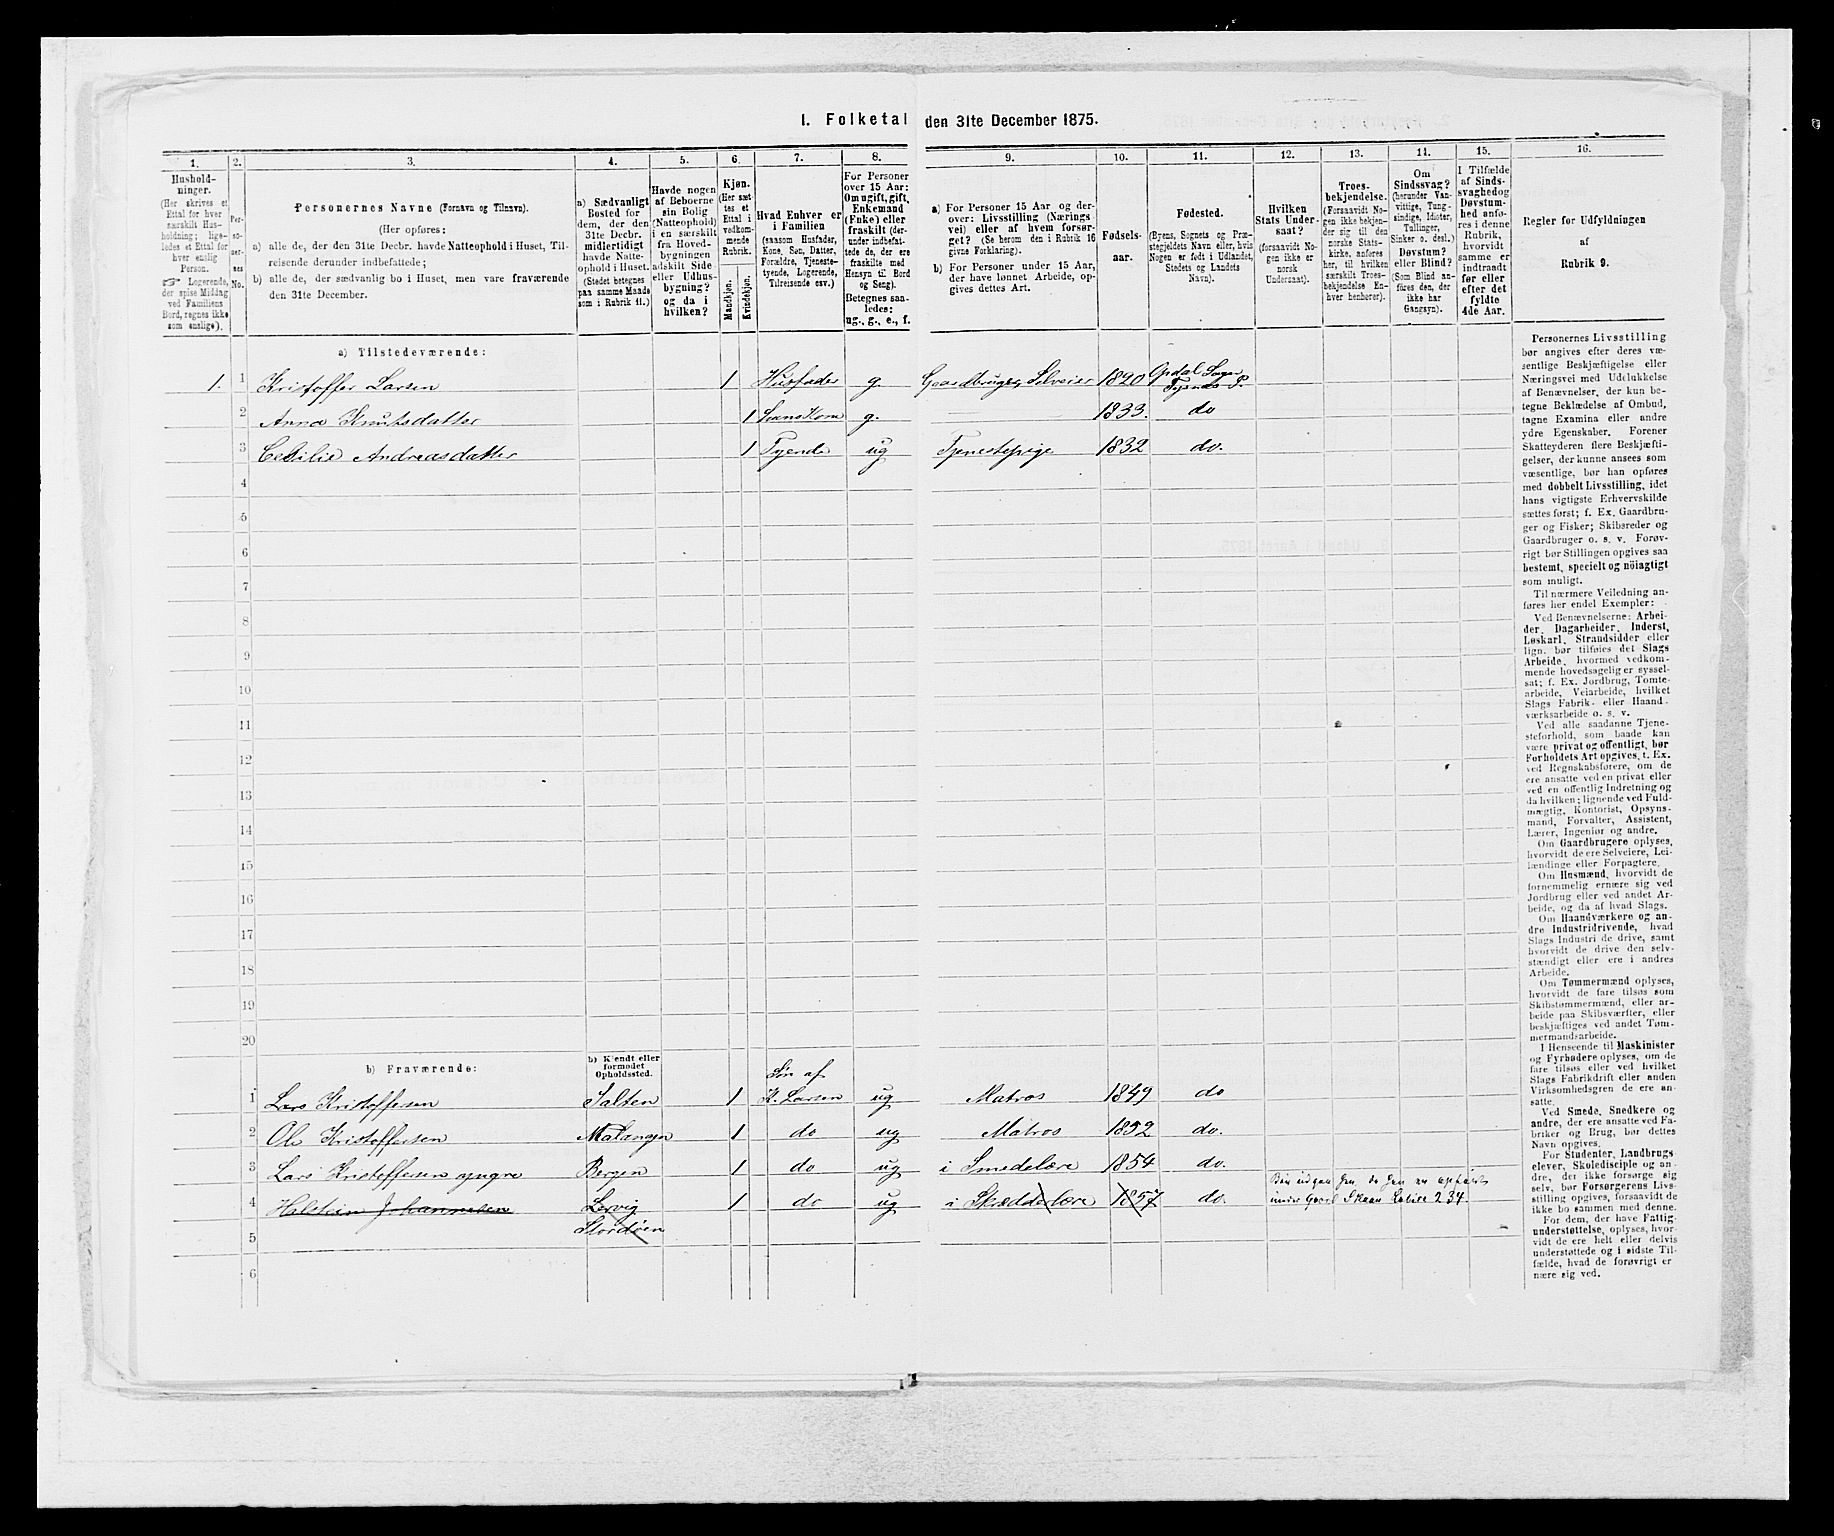 I. Folketal den 31te December 1875.
1. 2. 3. 4. 5. 6. 7. 8. 9. 10. 11. 12. 13. 14. 15. 16.
Hushold-
ninger.
(Her skrives et
Ettal for hver
særskilt Hus-
holdning; lige-
ledes et Ettal for
hver enslig
Person.
☞ Logerende,
der spise Middag
ved Familiens
Bord, regnes ikke
som enslige).
Per-
so-
ner-
nes
No.
Personernes Navne (Fornavn og Tilnavn).
(Her opføres:
a) alle de, der den 31te Decbr. havde Natteophold i Huset, Til-
reisende derunder indbefattede;
b) alle de, der sædvanlig bo i Huset, men vare fraværende
den 31te December.
a) Sædvanligt
Bosted for
dem, der den
31te Decbr.
midlertidigt
havde Natte-
ophold i Huset.
(Stedet betegnes
paa samme Maade
som i Rubrik 11.)
Havde nogen
af Beboerne
sin Bolig
(Natteophold)
i en særskilt
fra Hoved-
bygningen
adskilt Side
eller Udhus-
bygning?
og da i
hvilken?
Kjøn.
(Her sæt-
tes et
Ettal i
vedkom-
mende
Rubrik.
Mandkjøn.
Kvindekjøn.
Hvad Enhver er
i Familien
(saasom Husfader,
Kone, Søn, Datter,
Forældre, Tjeneste-
tyende, Logerende,
Tilreisende osv.)
For Personer
over 15 Aar:
Om ugift, gift,
Enkemand
(Enke) eller
fraskilt (der-
under indbefat-
tede de, der ere
fraskilte med
Hensyn til Bord
og Seng).
Betegnes saa-
ledes:
ug., g., e., f.
a) For Personer 15 Aar og der-
over: Livsstilling (Nærings
vei) eller af hvem forsør-
get? (Se herom den i Rubrik 16
givne Forklaring).
b) For Personer under 15 Aar,
der have lønnet Arbeide, op-
gives dettes Art.
Fødsels-
aar.
Fødested.
(Byens, Sognets og Præ-
stegjeldets Navn eller, hvis
Nogen er født i Udlandet,
Stedets og Landets
Navn).
Hvilken
Stats Under-
saat?
(forsaavidt No-
gen ikke er
norsk
Undersaat).
Troes-
bekjendelse.
(Forsaavidt No-
gen ikke bekjen-
der sig til den
norske Stats-
kirke, anføres
her, til hvilken
særskilt Troes-
bekjendelse En-
hver henhører).
Om
Sindssvag?
(herunder Van-
vittige, Tung-
sindige, Idioter,
Tullinger,
Sinker o. desl.)
Døvstum?
eller Blind?
(Som Blind an-
føres den, der
ikke har
Gangsyn).
I Tilfælde
af Sinds-
svaghed og
Døvstum-
hed anfø-
res i denne
Rubrik,
hvorvidt
samme er
indtraadt
før eller
efter det
fyldte
4de Aar.
Regler for Udfyldningen
af
Rubrik 9.
a) Tilstedeværende:
1. 1 Kristoffer Larsen 1 Husfader g. Gaardbruger, Selveier 1820 Opdal Sogn Tysnes P.
2 Anna Knutsdatter 1 hans Kone g. 1833. do
3 Cecilie Andreasdatter 1 Tyende ug Tjenestepige 1832 do.
4
5
6
7
8
9
10
11
12
13
14
15
16
17
18
19
20
b) Fraværende:
b) Kjendt eller
formodet
Opholdssted.
1 Lars Kristoffersen Salten 1 Søn af K. Larsen ug Matros 1849 do
2 Ole Kristoffersen Malangen 1 do ug Matros 1852 do.
3 Lars Kristoffersen yngre Bergen 1 do ug i Smedelære 1854 do.
4 Halstein Johannesen Lervig Stordøen 1 do ug i Skrædderlære 1857 do.
5
6
Personernes Livsstilling
bør angives efter deres væ-
sentlige Beskjæftigelse eller
Næringsvei med Udelukkelse
af Benævnelser, der kun be-
tegne Beklædelse af Ombud,
tagne Examina eller andre
ydre Egenskaber. Forener
Skatteyderen flere Beskjæfti-
gelser, der kunne ansees som
væsentlige, bør han opføres
med dobbelt Livsstilling, idet
hans vigtigste Erhvervskilde
sættes først; f. Ex. Gaardbru-
ger og Fisker; Skibsreder og
Gaardbruger o. s. v. Forøv-
rigt bør Stillingen opgives saa
bestemt, specielt og nöiagtigt
som muligt.
Til nærmere Veiledning an-
føres her endel Exempler:
Ved Benævnelserne: Arbei-
der, Dagarbeider, Inderst,
Løskarl, Strandsidder eller
lign. bør tilføies det Slags
Arbeide, hvormed vedkom-
mende hovedsagelig er syssel-
sat; f. Ex. Jordbrug, Tomte-
arbeide, Veiarbeide, hvilket
Slags Fabrik- eller Haand-
værksarbeide o. s. v.
Ved alle saadanne Tjene-
steforhold, som baade kan
være privat og offentligt, bør
Forholdets Art opgives, t. Ex.
ved Regnskabsførere, om de
ere ansatte ved en privat eller
ved en offentlig Indretning og
da hvilken; lignende ved Fuld-
mægtig, Kontorist, Opsyns-
mand, Forvalter, Assistent,
Lærer, Ingeniør og andre.
Om Gaardbrugere oplyses,
hvorvidt de ere Selveiere, Lei-
lændinge eller Forpagtere.
Om Husmænd, hvorvidt de
fornemmelig ernære sig ved
Jordbrug eller ved andet Ar-
beide, og da af hvad Slags.
Om Haandværkere og an-
dre Industridrivende, hvad
Slags Industri de drive, samt
hvorvidt de drive den selv-
stændigt eller ere i andres
Arbeide.
Om Tømmermænd oplyses,
hvorvidt de fare tilsøs som
Skibstømmermænd, eller ar-
beide paa Skibsværfter, eller
beskjæftiges ved andet Tøm-
mermandsarbeide.
I Henseende til Maskinister
og Fyrbødere oplyses, om de
fare tilsøs eller ved hvilket
Slags Fabrikdrift eller anden
Virksomhedsgren de ere an-
satte.
Ved Smede, Snedkere og
andre, der ere ansatte ved Fa-
briker og Brug, bør dettes
Navn opgives.
For Studenter, Landbrugs
elever, Skoledisciple og an-
dre, der ikke forsørge sig
selv, bør Forsørgerens Livs-
stilling opgives, forsaavidt de
ikke bo sammen med denne.
For dem, der have Fattig-
understøttelse, oplyses, hvor-
vidt de ere helt eller delvis
understøttede og i sidste Til-
fælde, hvad de forøvrigt er
nære sig ved.